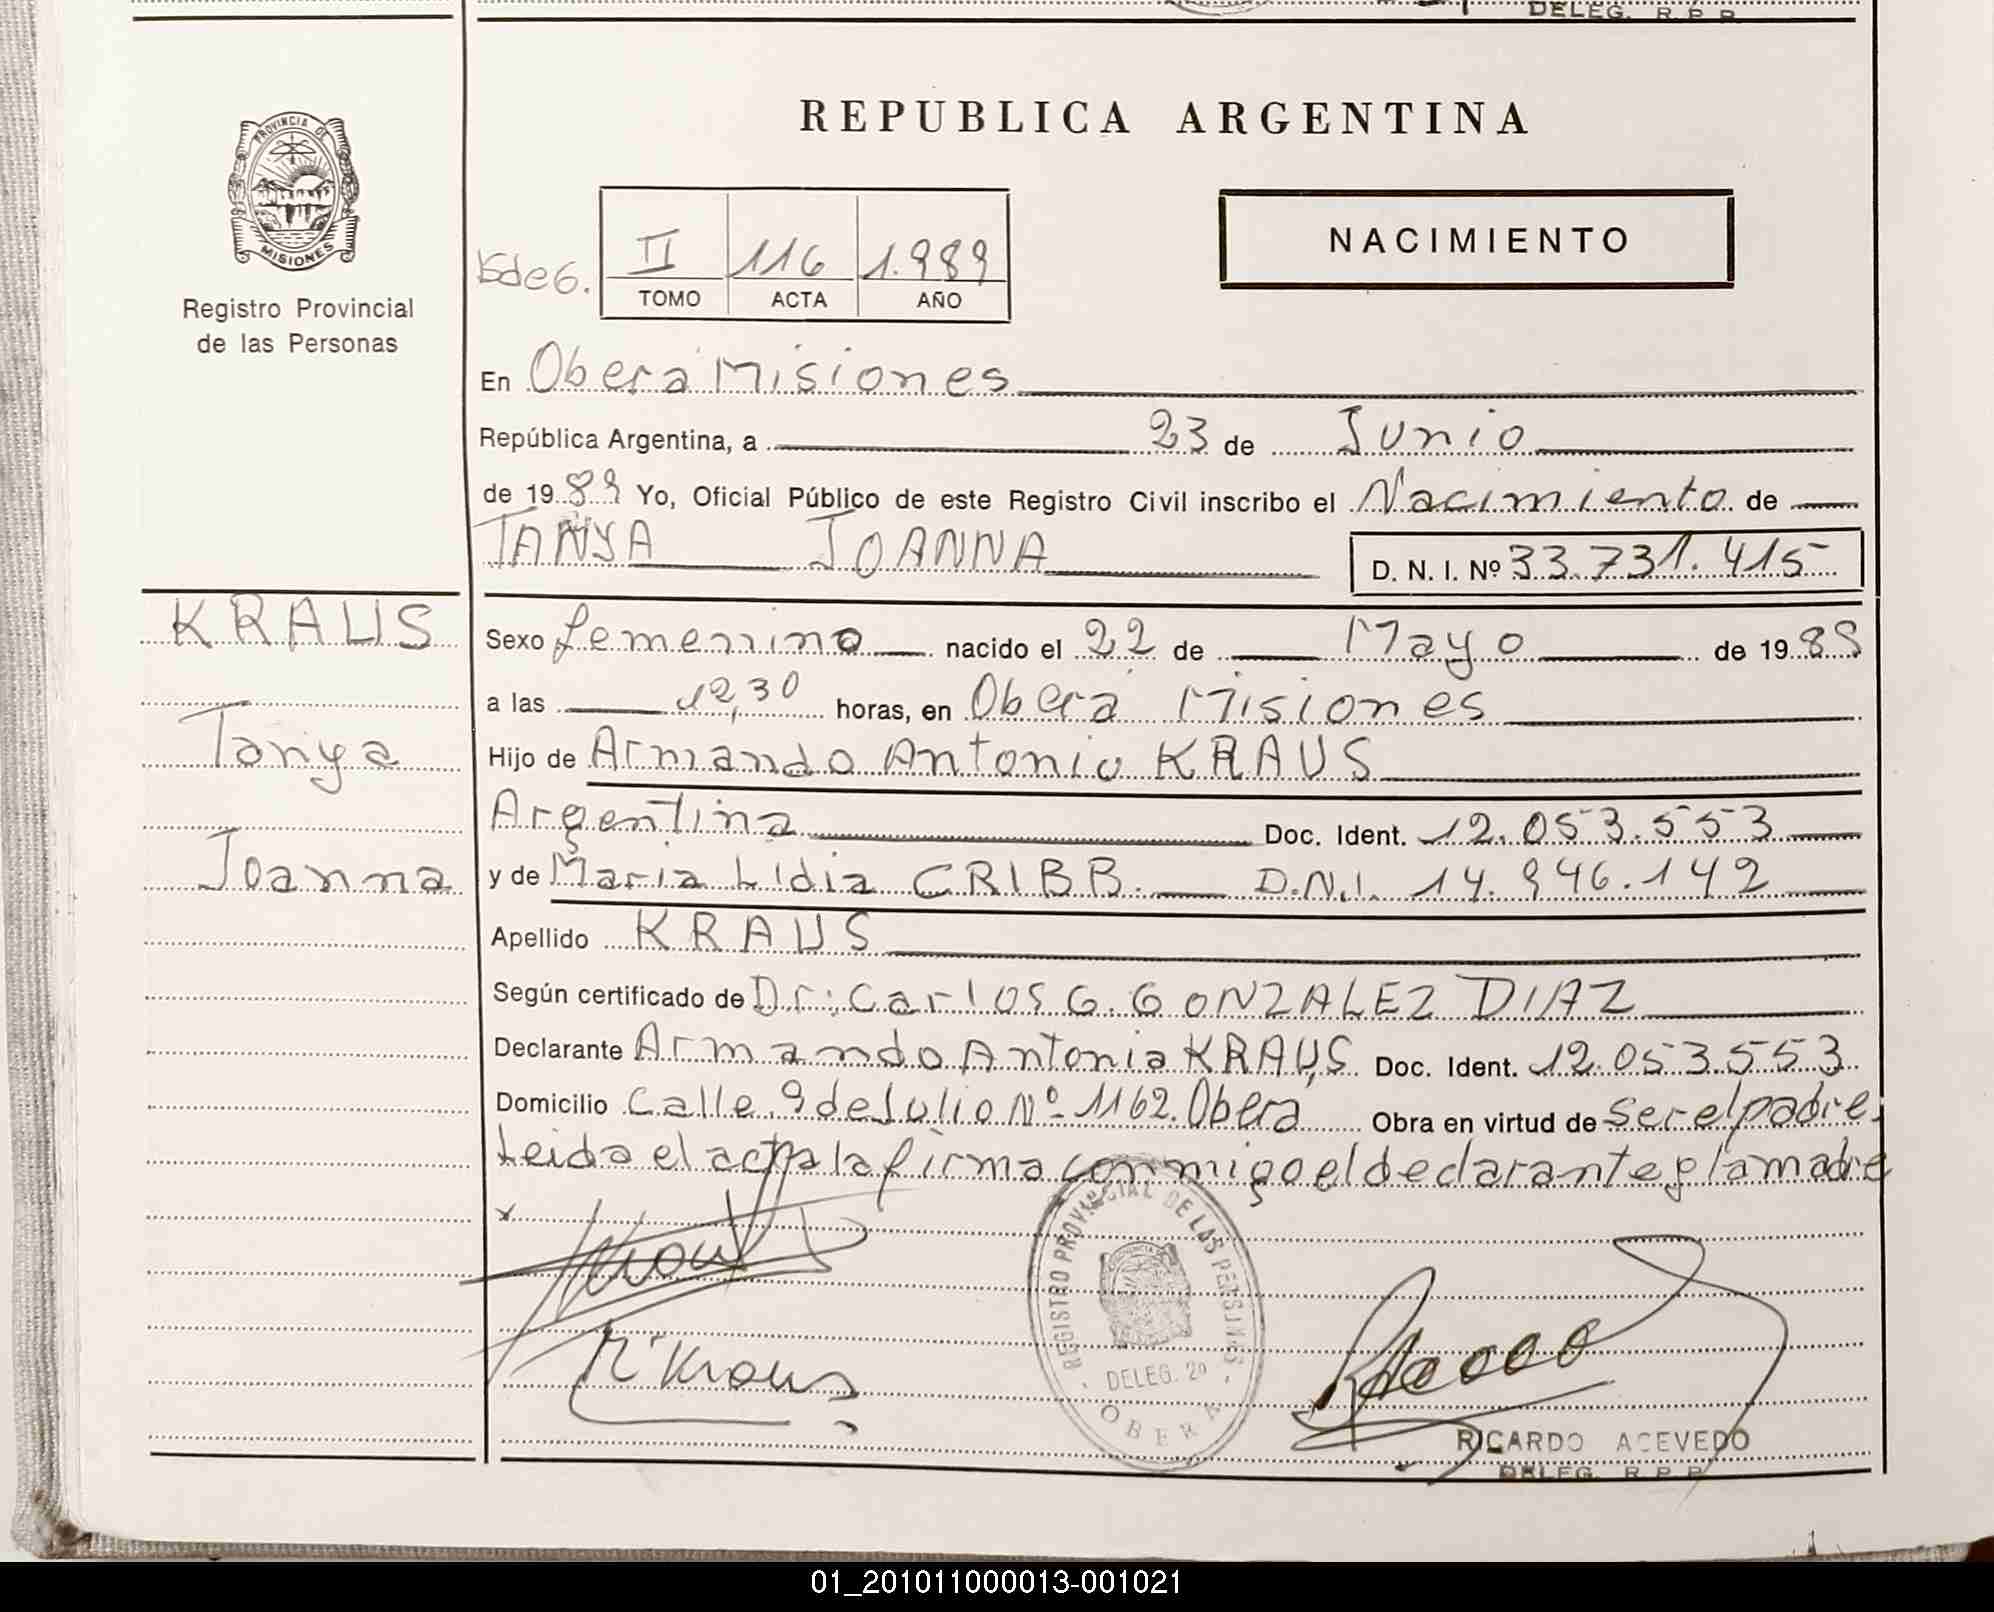 DELEG. R. P. P.
REPUBLICA ARGENTINA
PROVINCIA DE
MISIONES
Registro Provincial
de las Personas
NACIMIENTO
II 116 1.989
TOMO ACTA AÑO
En Oberá Misiones
República Argentina, a 23 de Junio
de 1989 Yo, Oficial Público de este Registro Civil inscribo el Nacimiento de
TANYA JOANNA D. N. I. Nº 33.731.415
KRAUS
Tanya
Joanna
Sexo femenino nacido el 22 de Mayo de 1989
a las 12,30 horas, en Oberá Misiones
Hijo de Armando Antonio KRAUS
Argentina Doc. Ident. 12.053.553
y de Maria Lidia CRIBB. D.N.I. 14.946.142
Apellido KRAUS
Según certificado de Dr: Carlos G. GONZALEZ DIAZ
Declarante Armando Antonio KRAUS Doc. Ident. 12.053.553
Domicilio Calle 9 de Julio Nº 1162. Oberá Obra en virtud de ser el padre.
Leida el acta la firma conmigo el declarante y la madre
x
REGISTRO PROVINCIAL DE LAS PERSONAS
DELEG. 2ª
OBERA
M Kraus
RICARDO ACEVEDO
DELEG. R. P. P.
01_201011000013-001021